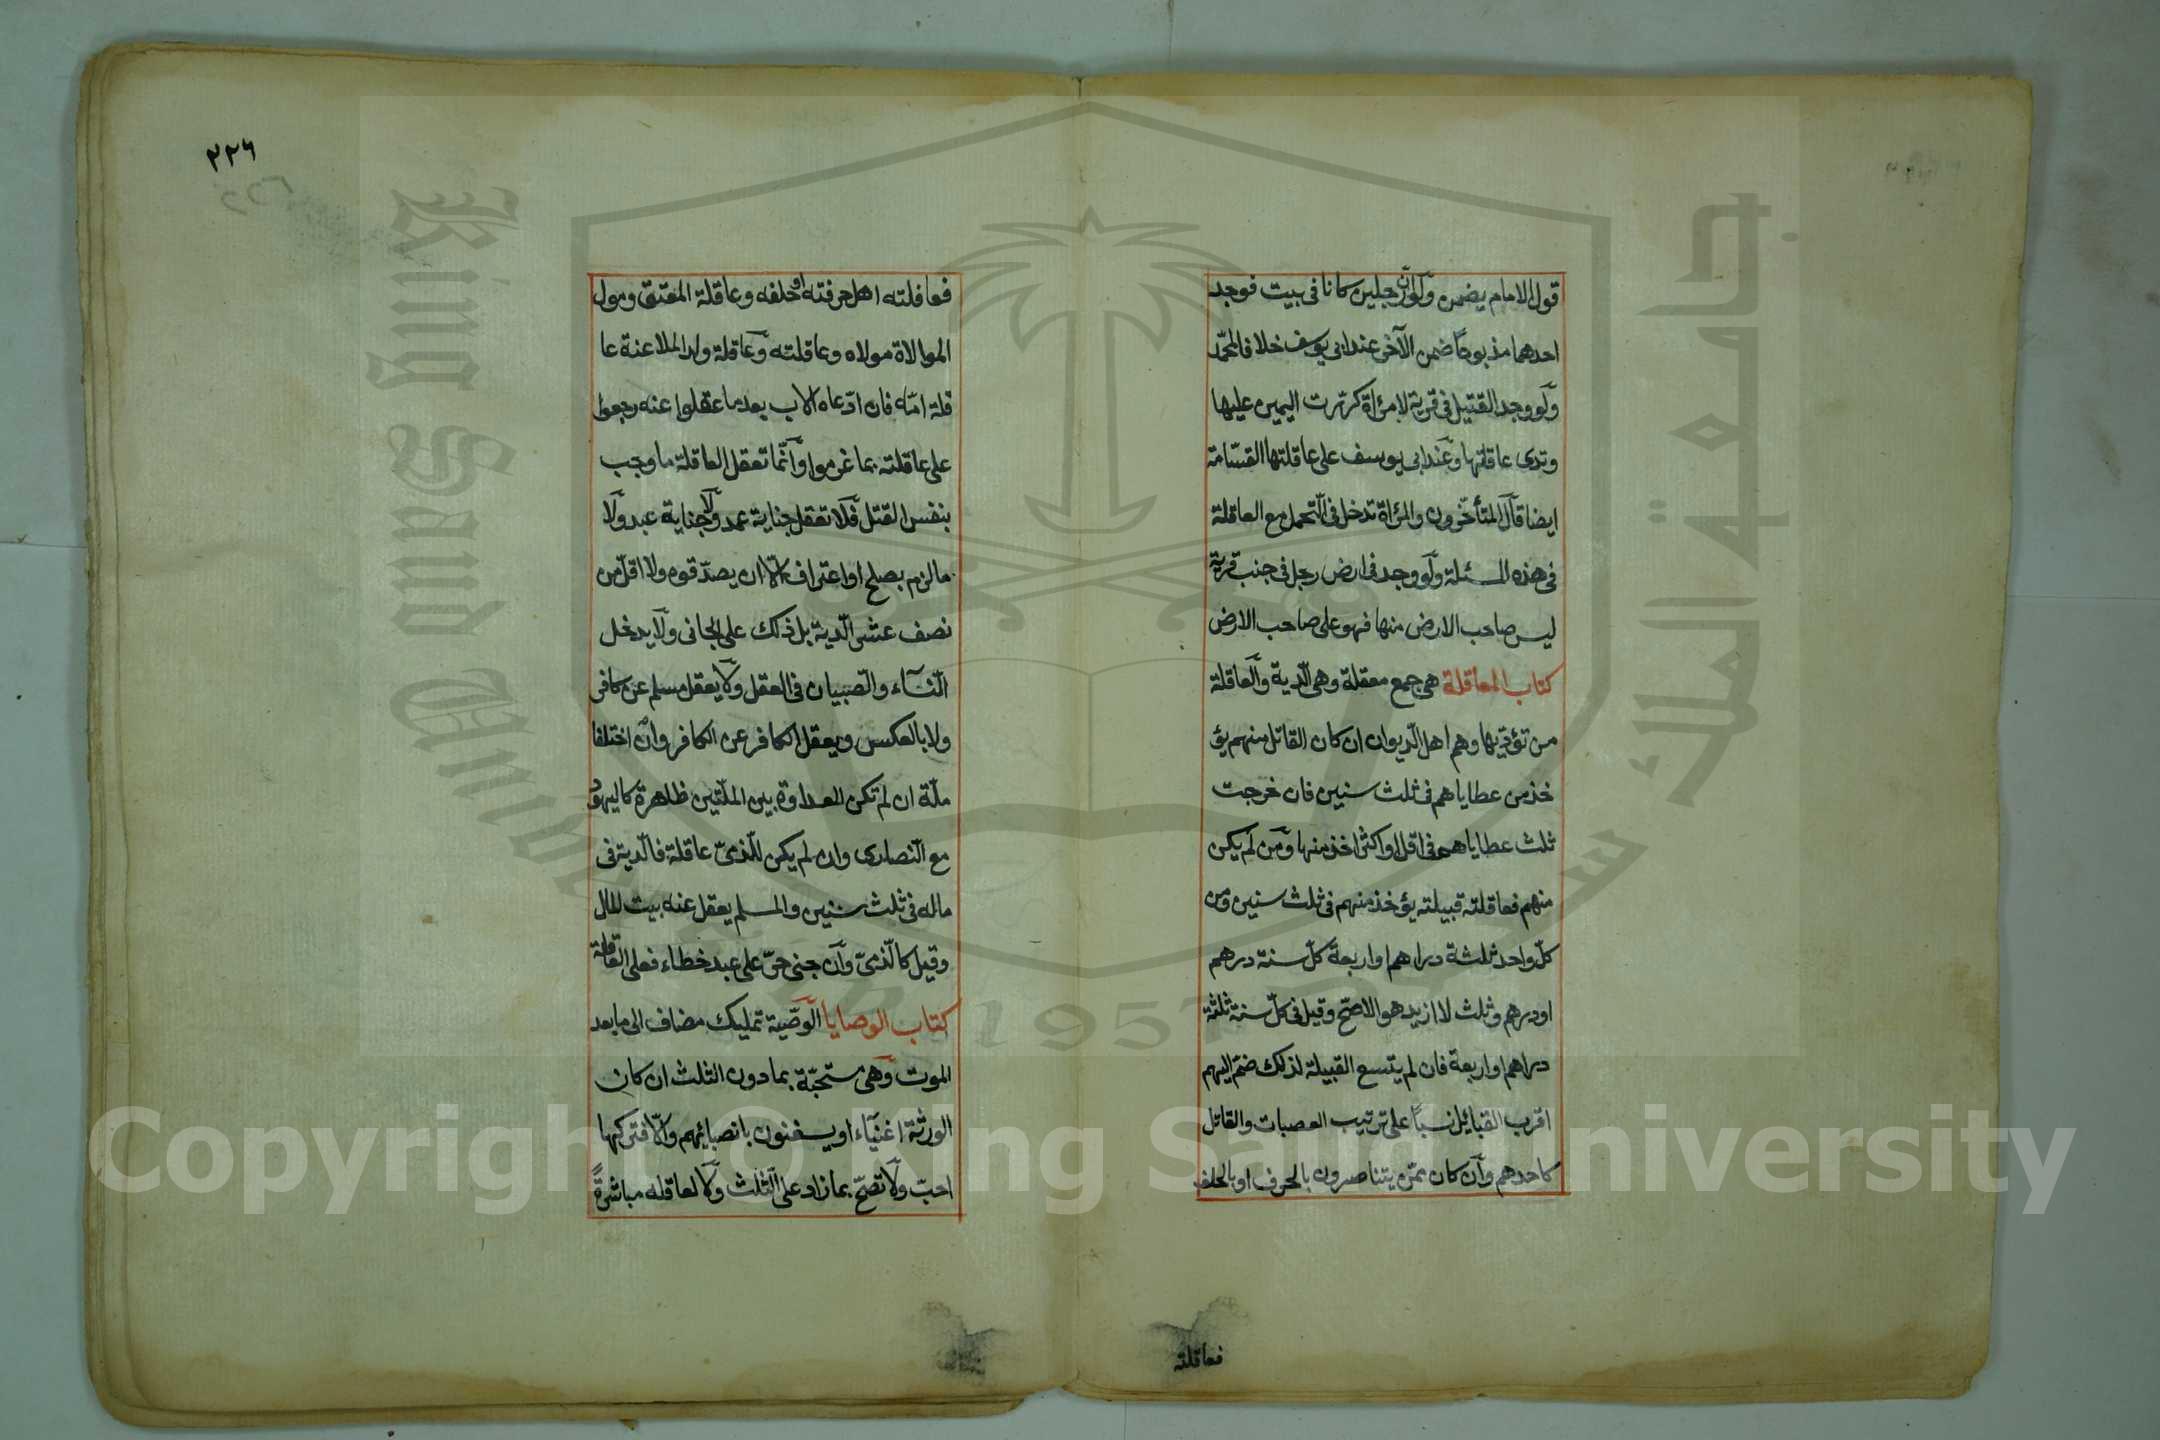 قول الامام يضمن ولو ان رجلين كانا فى بيت فوجد
احدهما مذبوحًا ضمن الآخر عند ابى يوسف خلافا لمحمّد
ولو وجد القتيل فى قرية لامرأة كرّرت اليمين عليها
وتدى عاقلتها وعند ابى يوسف على عاقلتها القسّامة
ايضا قال المتأخّرون والمرأة تدخل فى التّحمل مع العاقلة
فى هذه المسئلة ولو وجد فى ارض رجل فى جنب قرية
ليس صاحب الارض منها فهو على صاحب الارض
كتاب المعاقلة هى جمع معقلة وهى الّدية والعاقلة
من تؤدّيها وهم اهل الّديوان ان كان القاتل منهم يؤ
خذ من عطاياهم فى ثلث سنين فان خرجت
ثلث عطاياهم فى اقل او اكثر اخذ منها ومن لم يكن
منهم فعاقلته قبيلته يؤخذ منهم فى ثلث سنين ومن
كلّ واحد ثلثة دراهم او اربعة كلّ سنة درهم
او درهم وثلث لا ازيد هو الاصحّ وقيل فى كلّ سنة ثلثة
دراهم او اربعة فان لم يتسع القبيلة لذلك ضمّ اليهم
اقرب القبايل نسبًا على ترتيب العصبات والقاتل
كاحدهم وان كان ممّن يتناصرون بالحرف او بالحلف
فعاقلته
٢٢٦
فعاقلته اهل حرفته او حلفه وعاقلة المعتق ومولى
الموالاة مولاه وعاقلته وعاقلة ولد الملاعنة عا
قلة امّه فان ادّعاه الاب بعد ما عقلوا عنه رجعوا
على عاقلته بما غرموا وانّما تعقل العاقلة ما وجب
بنفس القتل فلا تعقل جناية عمد ولا جناية عبد ولا
ما لزم بصلح او اعتراف الّا ان يصدّقوه ولا اقلّ من
نصف عشر الّدية بل ذلك على الجانى ولا يدخل
النّسآء والصّبيان فى العقل ولا يعقل مسلم عن كافر
ولا بالعكس ويعقل الكافر عن الكافر وان اختلفا
ملّة ان لم تكن العداوة بين الملّتين ظاهرة كاليهود
مع النّصارى وان لم يكن للذّمىّ عاقلة فالدّية فى
ماله فى ثلث سنين والمسلم يعقل عنه بيت المال
وقيل كالذّمىّ وان جنى حرّ على عبد خطاء فعلى العاقلة
كتاب الوصايا الوصّية تمليك مضاف الى ما بعد
الموت وهى مستحبّة بما دون الثلث ان كان
الورثة اغنيآء او يستغنون بانصبائهم والّا فتركها
احبّ ولا تصحّ بما زاد على الثّلث ولا لقاتله مباشرةً
King Saud University
جامعة الملك سعود
1957
Copyright © King Saud University